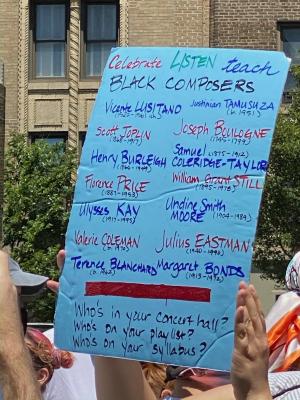 Celebrate LISTEN teach
BLACK COMPOSERS
Vicente LUSITANO
Justinian TAMUSUZA
(b. 1951)
Scott JOPLIN
(1868-1917)
Joseph BOLOGNE
(1745-1799)
Henry BURLEIGH
(1866-1949)
Samuel (1875-1912)
COLERIDGE-TAYLOR
Florence PRICE
(1887-1953)
William Grant STILL
(1895-1978)
Ulysses KAY
(1917-1995)
Undine Smith
MOORE (1904-1989)
Valerie COLEMAN
Julius EASTMAN
(1940-1990)
Terence BLANCHARD
(b. 1962)
Margaret BONDS
(1913-1972)
Who's in your concert hall?
Who's on your playlist?
Who's on your syllabus?